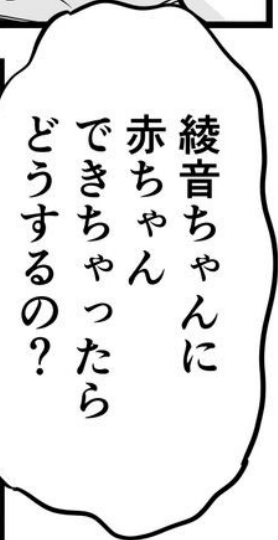 綾音ちゃんに
赤ちゃん
できちゃったら
どうするの?